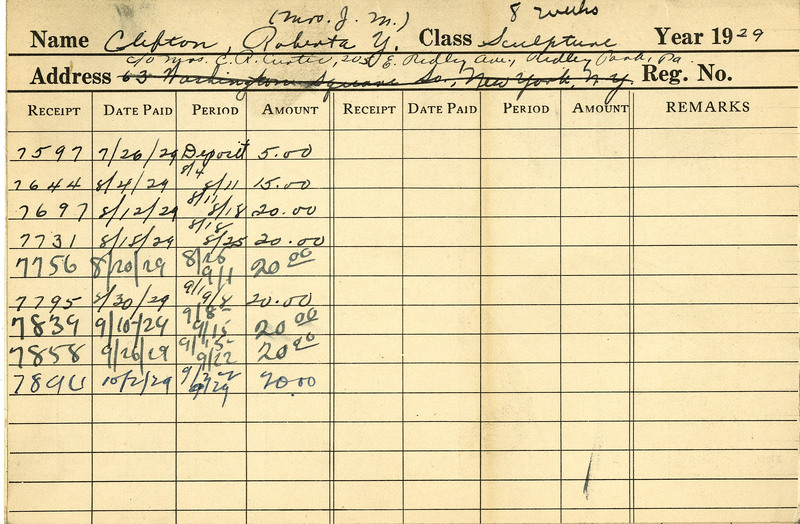 (Mrs. J. M.) 8 weeks
Name Clifton, Roberta Y. Class Sculpture Year 1929
c/o Mrs. C. R. 205 E. Ridley Ave, Ridley Park, Pa.
Address 63 Washington Square So., New York, N.Y. Reg. No.
RECEIPT DATE PAID PERIOD AMOUNT RECEIPT DATE PAID PERIOD AMOUNT REMARKS
7597 7/26/29 Deposit 5.00
7644 8/4/29 8/4 8/11 15.00
7697 8/12/29 8/11 8/18 20.00
7731 8/18/29 8/18 8/25 20.00
7756 8/20/29 8/26 9/1 20.00
7795 8/30/29 9/1 9/8 20.00
7839 9/10-29 9/8- 9/15 20.00
7858 9/26/29 9/15- 9/22 20.00
10/2/29 9/22 9/29 20.00